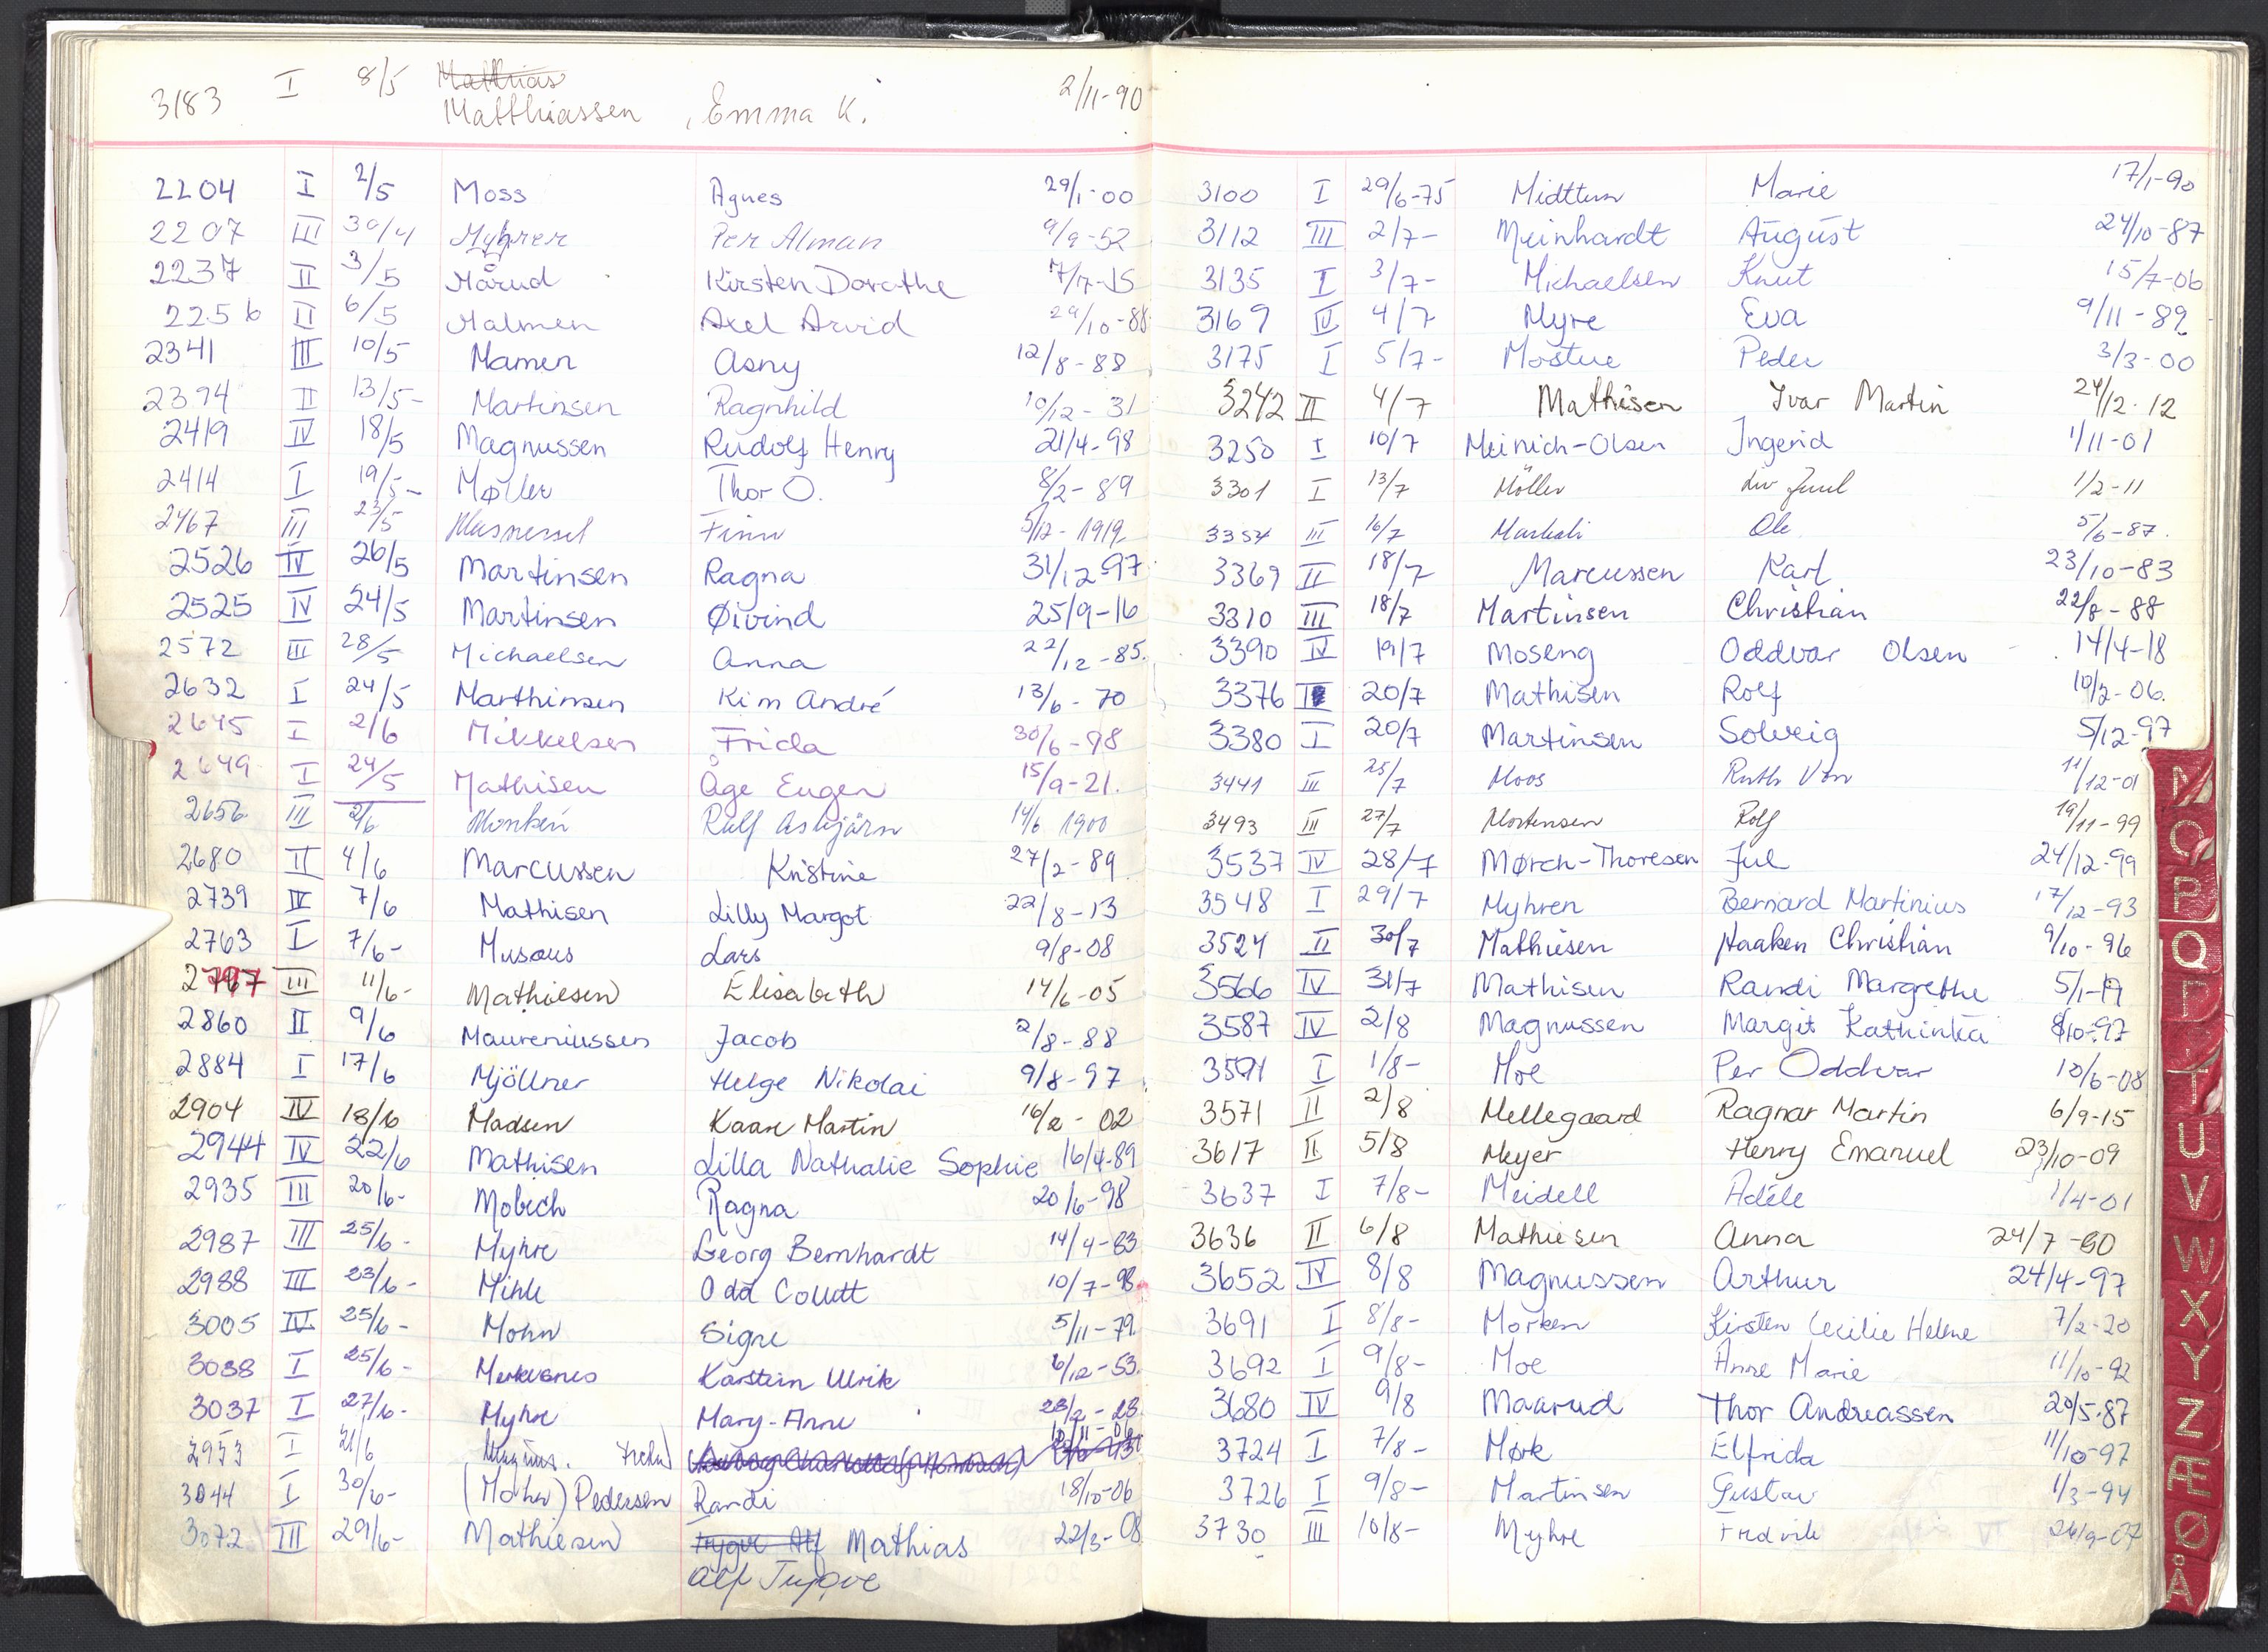 3183 I 8/5 Matthias
Matthiassen, Emma K. 2/11-90
2204 I 2/5 Moss Agnes 29/1-00
2207 III 30/4 Myhrer Per Alman 9/9-52
2237 II 3/5 Mårud Kirsten Dorothe 7/7-15
2256 II 6/5 Malmen Axel Arvid 29/10-88
2341 III 10/5 Mamen Asny 12/8-88
2394 II 13/5- Martinsen Ragnhild 10/12-31
2419 IV 18/5 Magnussen Rudolf Henry 21/4-98
2414 I 19/5- Møller Thor O. 8/2-89
2467 III 23/5 Finn 5/12-1919
2526 IV 26/5 Martinsen Ragna 31/12-97
2525 IV 24/5 Martinsen Øivind 25/9-16
2572 III 28/5 Michaelsen Anna 22/12-85.
2632 I 24/5 Marthinsen Kim André 13/6-70
2645 I 2/6 Mikkelsen Frida 30/6-98
2649 I 24/5 Mathisen Åge Eugen 15/9-21.
2656 III 2/6 Monken Ralf Asbjörn 14/6 1900
2680 II 4/6 Marcussen Kristine 27/2-89
2739 IV 7/6 Mathisen Lilly Margot 22/8-13
2763 I 7/6- Musæus Lars 9/8-08
2797 III 11/6- Mathiesen Elisabeth 14/6-05
2860 II 9/6 Maureniussen Jacob 2/8-88
2884 I 17/6 Mjöllner Helge Nikolai 9/8-97
2904 IV 18/6 Madsen Kaare Martin 16/2-02
2944 IV 22/6 Mathisen Lilla Nathalie Sophie 16/4-89
2935 III 20/6- Mobech Ragna 20/6-98
2987 III 25/6- Myhre Georg Bernhardt 14/4-83
2988 III 23/6- Mihle Odd Collett 10/7-98
3005 IV 25/6- Mohn Signe 5/11-79.
3038 I 25/6- Merkesnes Karstein Ulrik 6/12-53.
3037 I 27/6- Myhre Mary-Anne 23/2-23
2953 I 21/6 Magnus. 10/11-06
3044 I 30/6- (Mohn) Pedersen Randi 18/10-06
3072 III 29/6- Mathiesen Trygve Alf Mathias 22/3-08
Alf Trygve
3100 I 29/6-75 Midttun Marie 17/1-90
3112 III 2/7- Meinhardt August 24/10-87
3135 I 3/7- Michaelsen Knut 15/7-06
3169 IV 4/7 Myre Eva 9/11-89
3175 I 5/7- Mostue Peder 3/3-00
3242 II 4/7 Mathisen Ivar Martin 24/12-12
3250 I 10/7 Meinich-Olsen Ingerid 1/11-01
3301 I 13/7 Möller Liv Juul 1/2-11
3354 III 16/7 Ole 5/6-87.
3369 II 18/7 Marcussen Karl 23/10-83
3310 III 18/7 Martinsen Christian 22/8-88
3390 IV 19/7 Moseng Oddvar Olsen 14/4-18
3376 20/7 Mathisen Rolf 10/2-06.
3380 I 20/7 Martinsen Solveig 5/12-97
3441 III 25/7 Moos Ruth 11/12-01
3493 III 27/7 Mortensen Rolf 19/11-99
3537 IV 28/7 Mørch-Thoresen Jul 24/12-99
3548 I 29/7 Myhren Bernard Martinius 17/12-93
3524 II 30/7 Mathiesen Haaken Christian 9/10-96
3566 IV 31/7 Mathisen Randi Margrethe 5/1-19
3587 IV 2/8 Magnussen Margit Kathinka 8/10-97
3591 I 1/8- Moe Per Oddvar 10/6-08
3571 II 2/8 Mellegaard Ragnar Martin 6/9-15
3617 II 5/8 Meyer Henry Emanuel 23/10-09
3637 I 7/8- Meidell Adèle 1/4-01
3636 II 6/8 Mathiesen Anna 24/7-90
3652 IV 8/8 Magnussen Arthur 24/4-97
3691 I 8/8- Morken Kirsten Cecilie Helene 7/2-20
3692 I 9/8- Moe Anne Marie 11/10-92
3680 IV 9/8 Maarud Thor Andreassen 20/5-87
3724 I 7/8- Mørk Elfrida 11/10-97
3726 I 9/8- Martinsen Gustav 1/3-94
3730 III 10/8- Myhre Fredrik 26/9-07
N
O
P
Q
R
T
U
V
W
X
Y
Z
Æ
Ø
Å